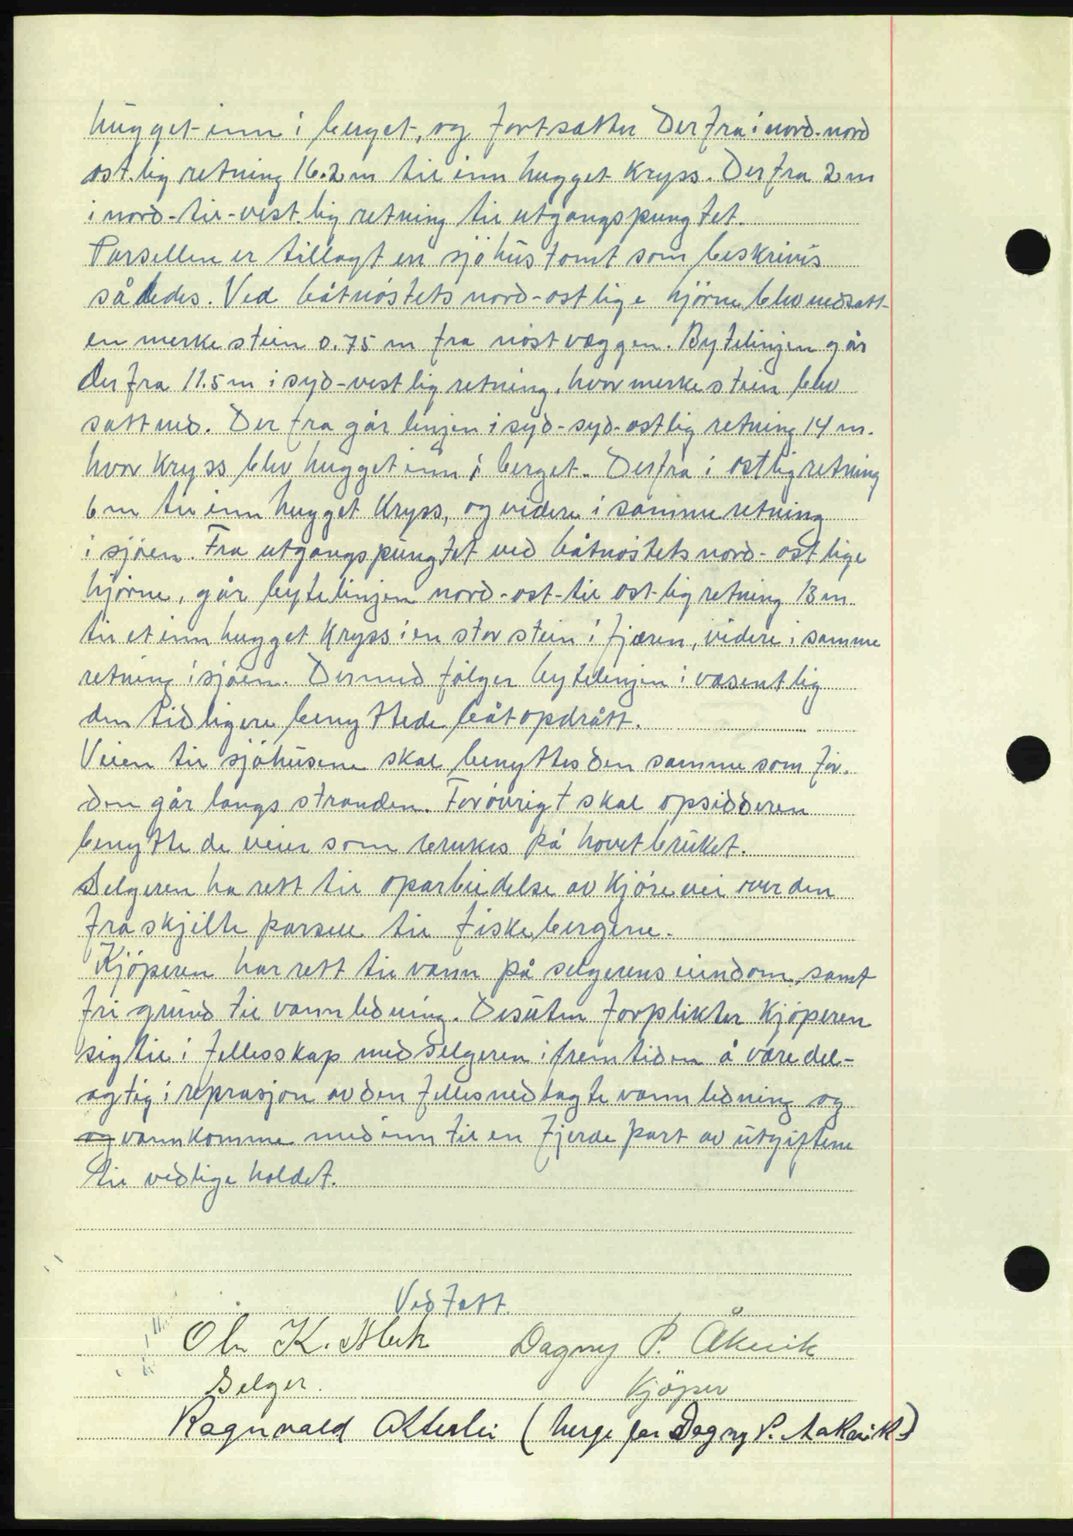 hugget inn i berget, og fortsatter Derfra i nord-nord
ost.lig retning 16.2 m til inn hugget Kryss. Derfra 2 m
i nord-til-vest.lig retning til utgangspungtet.
Parsellen er tillagt en sjöhustomt som beskrivis
således. Ved båtnöstets nord-ostlige hjörne blev nedsatt
en merke stein 0.75 m fra nöstvæggen. Bytelinjen går
derfra 11.5 m i syd-vestlig retning, hvor merke stein blev
satt ned. Derfra går linjen i syd-syd-ostlig retning 14 m.
hvor Kryss blev hugget inn i berget. Derfra i ostlig retning
6 m til inn hugget Kryss, og videre i samme retning
i sjöen. Fra utgangspungtet ved båtnöstets nord-ostlige
hjörne, går bytelinjen nord-ost-til ost-lig retning 13 m
til et inn hugget Kryss i en stor stein i fjæren, videre i samme
retning i sjöen. Dermed fölger bytelinjen i vasentlig
den tidligere benyttede båtopdrått.
Veien til sjöhusene skal benyttes den samme som för.
den går langs stranden. Foröurigt skal opsidderen
benytte de veier som brukes på hovetbruket.
Selgeren ha rett til oparbeidelse av Kjörevei over den
fraskjilte parsell til fiskebergene.
Kjöperen har rett til vann på selgerens eiendom, samt
fri grund til vannledning. Desuten forplikter Kjöperen
sig til i fellesskap med Selgeren i fremtiden å være del-
agtig i reprasjon av den fellesnedlagte vannledning og
og vannkomme med inn til en fjerde part av utgiftene
til vedlige holdet.
Vedtatt
Ole K. Dagny P. Åkvik
Selger. Kjöper
Ragnvald (Verge for Dagny P. Aakvik)